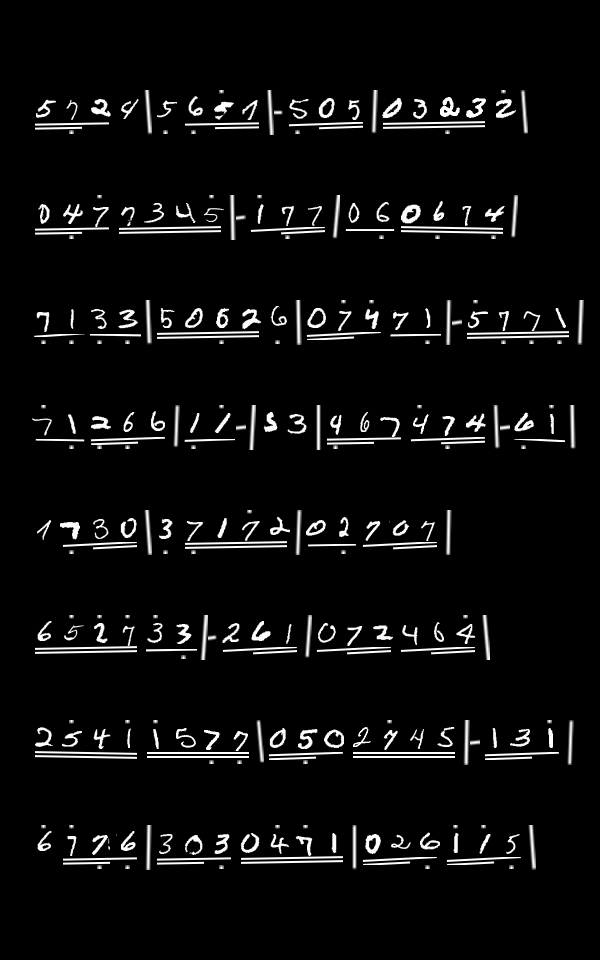 5724|5651|-505|03232|
0477345|-177|060674|
7133|50626|07471|-5771|
71266|11-|53|467474|-61|
1730|37172|02707|
652733|-261|072464|
25411577|0502745|-131|
6776|3030471|026115|